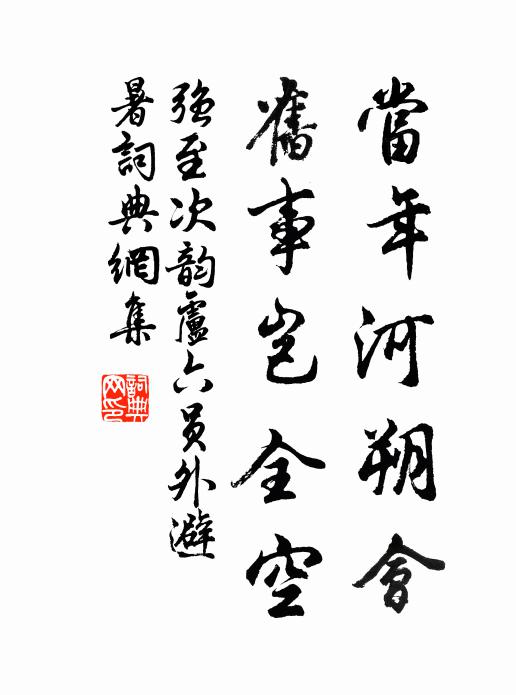 當年河朔會
舊事豈全空
強至次韵盧六員外避
暑詞典網集
詞典
网印